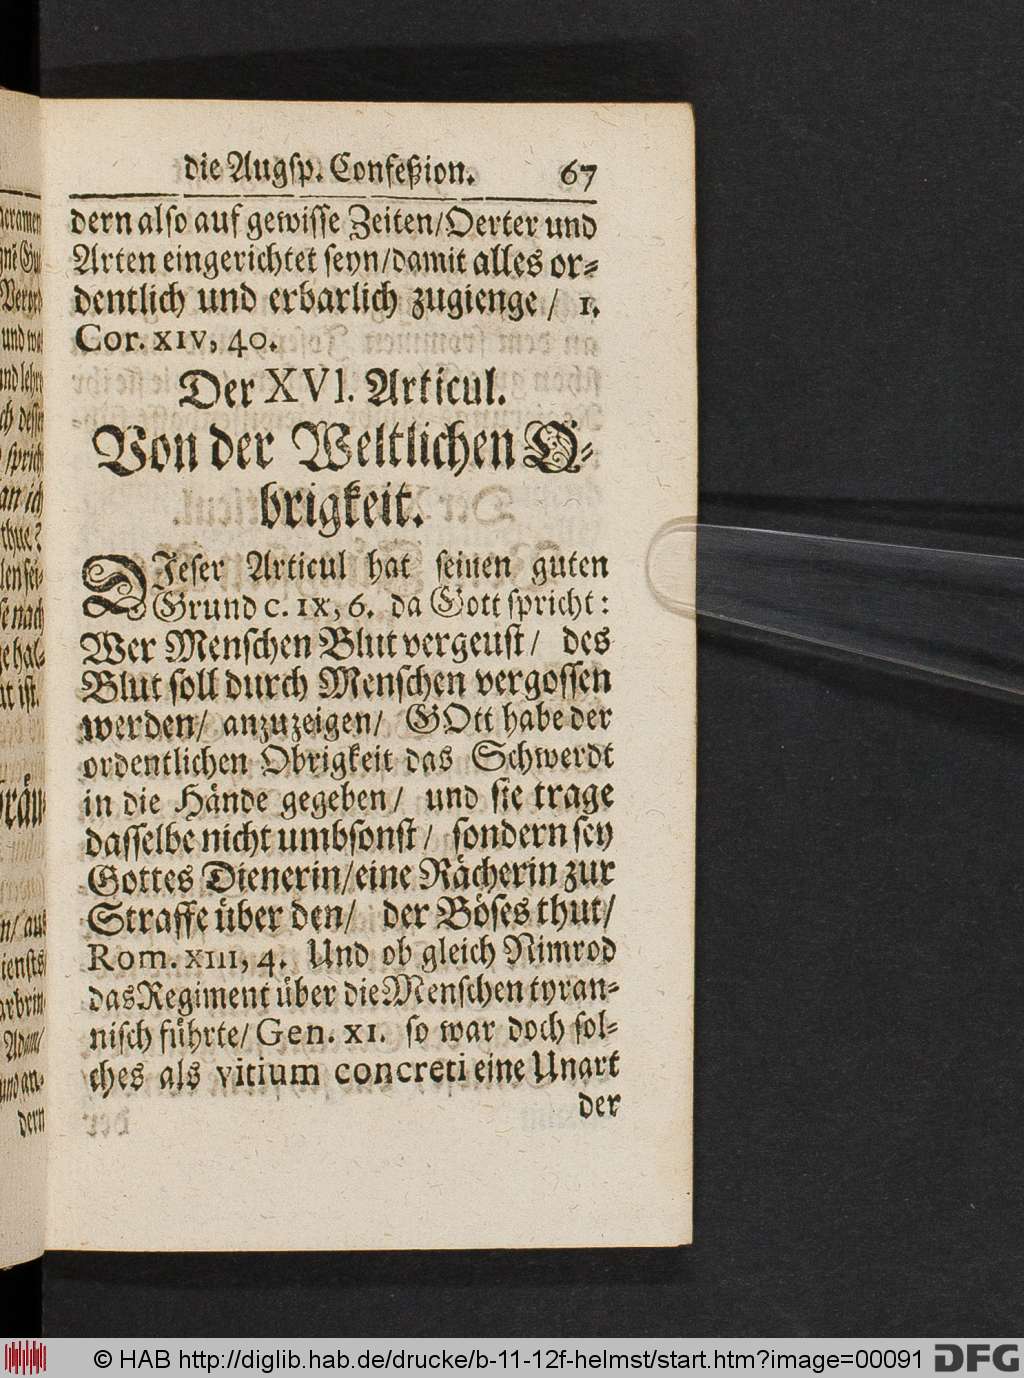 die Augsp. Confeßion. 67
dern also auf gewisse Zeiten/Oerter und
Arten eingerichtet seyn/damit alles or-
dentlich und erbarlich zugienge / 1.
Cor. XIV, 40.
Der XVI. Articul.
Von der Weltlichen O-
brigkeit.
DIeser Articul hat seinen guten
Grund c. IX, 6. da Gott spricht:
Wer Menschen Blut vergeust/ des
Blut soll durch Menschen vergossen
werden/ anzuzeigen/ GOtt habe der
ordentlichen Obrigkeit das Schwerdt
in die Hände gegeben/ und sie trage
dasselbe nicht umbsonst/ sondern sey
Gottes Dienerin/eine Rächerin zur
Straffe über den/ der Böses thut/
Rom. XIII, 4. Und ob gleich Nimrod
das Regiment über die Menschen tyran-
nisch führte/ Gen. XI. so war doch sol-
ches als vitium concreti eine Unart
der
© HAB http://diglib.hab.de/drucke/b-11-12f-helmst/start.htm?image=00091
DFG